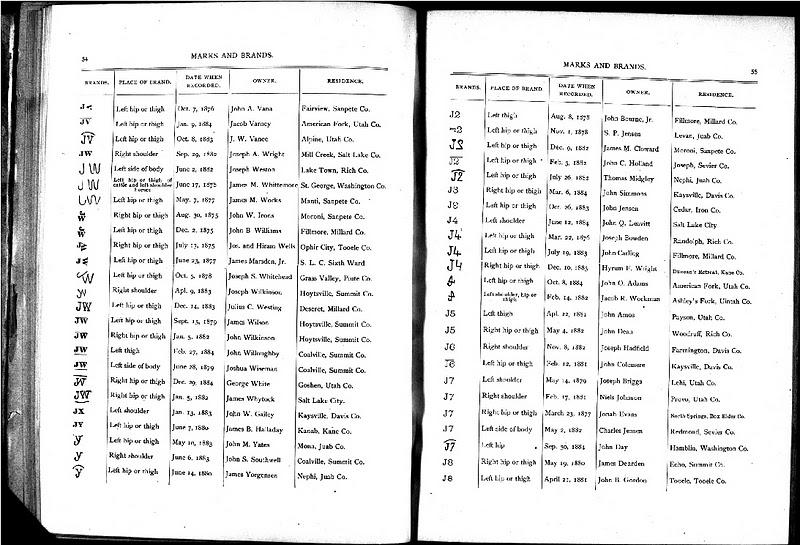 54
MARKS AND BRANDS.
BRANDS. PLACE OF BRAND. DATE WHEN RECORDED. OWNER. RESIDENCE.
Left hip or thigh Oct. 7, 1876 John A. Vana Fairview, Sanpete Co.
JV Left hip or thigh Jan. 9, 1884 Jacob Varney American Fork, Utah Co.
JV Left hip or thigh Oct. 8, 1883 J. W. Vance Alpine, Utah Co.
JW Right shoulder Sep. 29, 1882 Joseph A. Wright Mill Creek, Salt Lake Co.
JW Left side of body June 2, 1882 Joseph Weston Lake Town, Rich Co.
JW Left hip or thigh of cattle and left shoulder horses June 17, 1872 James M. Whittemore St. George, Washington Co.
Left hip or thigh May. 7, 1877 James M. Works Manti, Sanpete Co.
Right hip or thigh Aug. 30, 1875 John W. Irons Moroni, Sanpete Co.
Left hip or thigh Dec. 2, 1875 John B Williams Fillmore, Millard Co.
Right hip or thigh July 17, 1875 Jos. and Hiram Wells Ophir City, Tooele Co.
Left hip or thigh June 23, 1877 James Marsden, Jr. S. L. C. Sixth Ward
Left hip or thigh Oct. 5, 1878 Joseph S. Whitehead Grass Valley, Piute Co.
Right shoulder Apl. 9, 1883 Joseph Wilkinson Hoytsville, Summit Co.
JW Left hip or thigh Dec. 14, 1883 Julius C. Westing Deseret, Millard Co.
JW Left hip or thigh Sept. 15, 1879 James Wilson Hoytsville, Summit Co.
JW Right hip or thigh Jan. 5, 1882 John Wilkinson Hoytsville, Summit Co.
JW Left thigh Feb. 27, 1884 John Willoughby Coalville, Summit Co.
JW Left side of body June 28, 1879 Joshua Wiseman Coalville, Summit Co.
JW Right hip or thigh Dec. 29, 1884 George White Goshen, Utah Co.
JW Right hip or thigh Jan. 5, 1882 James Whytock Salt Lake City.
JX Left shoulder Jan. 13, 1883 John W. Gailey Kaysville, Davis Co.
JY Left hip or thigh June 7, 1880 James B. Halladay Kanab, Kane Co.
Left hip or thigh May 10, 1883 John M. Yates Mona, Juab Co.
Right shoulder June 6, 1883 John S. Southwell Coalville, Summit Co.
Left hip or thigh June 14, 1880 James Yorgensen Nephi, Juab Co.
MARKS AND BRANDS.
55
BRANDS. PLACE OF BRAND DATE WHEN RECORDED. OWNER. RESIDENCE.
J2 Left thigh Aug. 8, 1878 John Bourne, Jr. Fillmore, Millard Co.
Left hip or thigh Nov. 1, 1878 S. P. Jensen Levan, Juab Co.
J2 Left hip or thigh Dec. 9, 1882 James M. Cloward Moroni, Sanpete Co.
J2 Left hip or thigh Feb. 3, 1882 John C. Holland Joseph, Sevier Co.
J2 Left hip or thigh July 26, 1882 Thomas Midgley Nephi, Juab Co.
J3 Right hip or thigh Mar. 6, 1884 John Simmons Kaysville, Davis Co.
J3 Left hip or thigh Oct. 26, 1883 John Jensen Cedar, Iron Co.
J4 Left shoulder June 12, 1884 John Q. Leavitt Salt Lake City
J4 Left hip or thigh Mar. 22, 1876 Joseph Bowden Randolph, Rich Co.
J4 Left hip or thigh July 19, 1883 John Carling Fillmore, Millard Co.
J4 Right hip or thigh Dec. 10, 1883 Hyrum F. Wright Duncan's Retreat, Kane Co.
Left hip or thigh Oct. 8, 1884 John O. Adams American Fork, Utah Co.
Left shoulder, hip or thigh Feb. 14, 1882 Jacob R. Workman Ashley's Fork, Uintah Co.
J5 Left thigh Apl. 22, 1882 John Amos Payson, Utah Co.
J5 Right hip or thigh May 4, 1882 John Dean Woodruff, Rich Co.
J6 Right shoulder Nov. 8, 1882 Joseph Hadfield Farmington, Davis Co.
J6 Left hip or thigh Feb. 12, 1881 John Colemere Kaysville, Davis Co.
J7 Left shoulder May 14, 1879 Joseph Briggs Lehi, Utah Co.
J7 Right shoulder Feb. 17, 1881 Niels Johnson Provo, Utah Co.
J7 Right hip or thigh March 23, 1877 Jonah Evans North Springs, Box Elder Co.
J7 Left side of body May 2, 1882 Charles Jensen Redmond, Sevier Co.
J7 Left hip Sep. 30, 1884 John Day Hamblin, Washington Co.
J8 Right hip or thigh May 19, 1880 James Dearden Echo, Summit Co.
J8 Left hip or thigh April 21, 1881 John B. Gordon Tooele, Tooele Co.